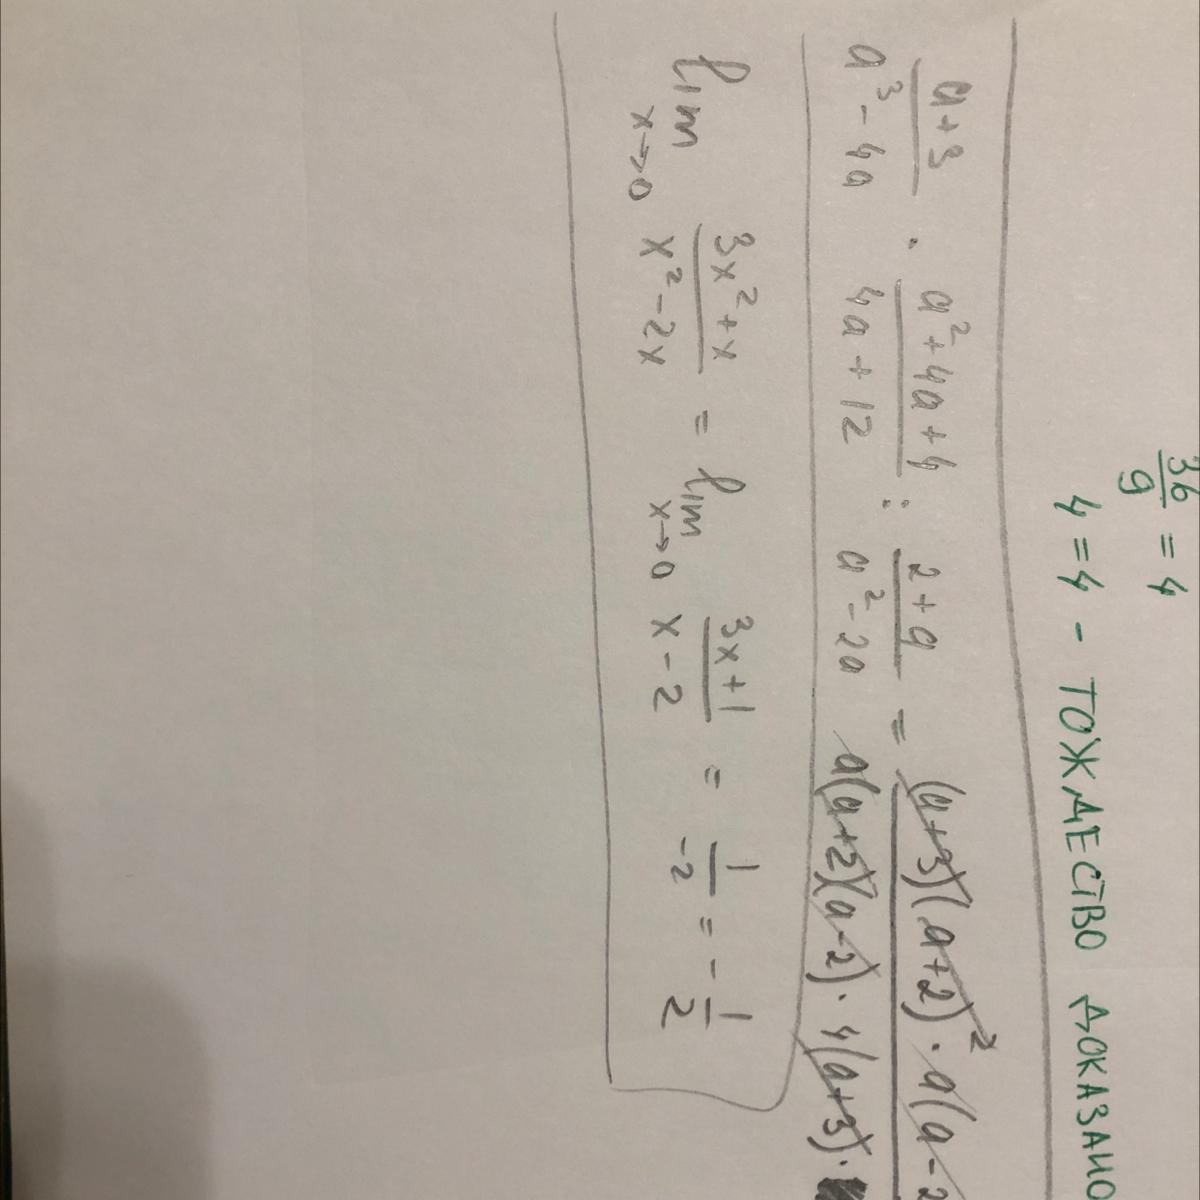 36/9 = 4
4 = 4 - ТОЖДЕСТВО ДОКАЗАНО
(a+3)/(a³-4a) · (a²+4a+4)/(4a+12) : (2+a)/(a²-2a) = ((a+3)(a+2)² · a(a-2)/(a(a+2)(a-2) · 4(a+3) ·
lim x→0 (3x²+x)/(x²-2x) = lim x→0 (3x+1)/(x-2) = 1/-2 = -1/2